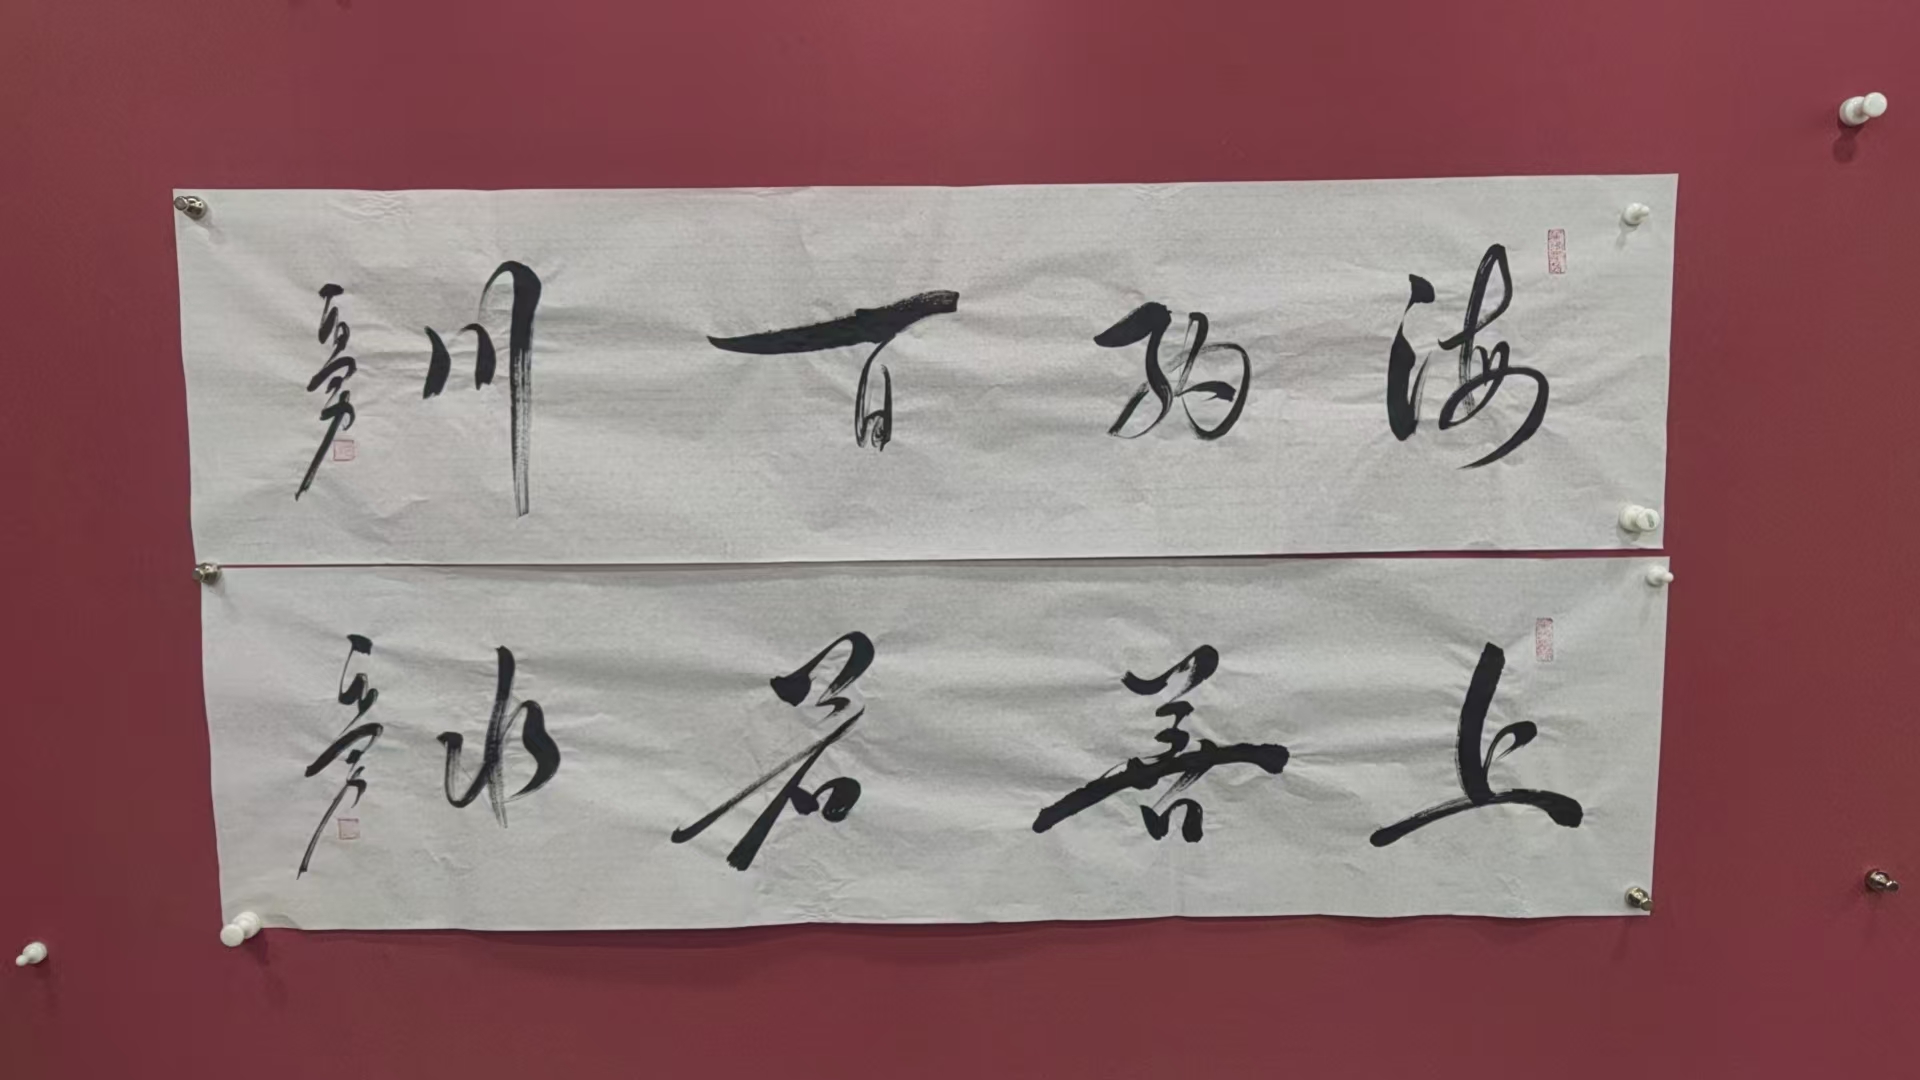 海纳百川
上善若水